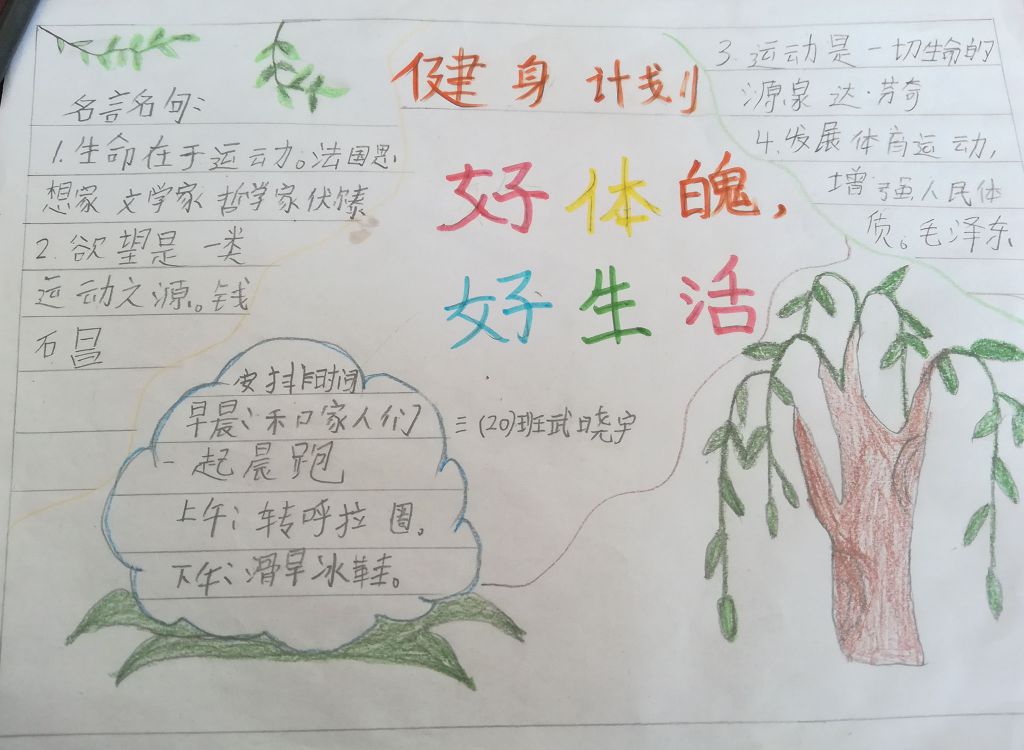 健身计划
好体魄，
好生活
名言名句：
1.生命在于运动。法国思
想家 文学家 哲学家伏
2.欲望是一类
运动之源。钱
石昌
3.运动是一切生命的
源泉 达·芬奇
4.发展体育运动，
增强人民体
质。毛泽东
安排时间
早晨：和口家人们
一起晨跑
上午：转呼拉圈。
下午：滑旱冰鞋。
三(20)班武晓宇